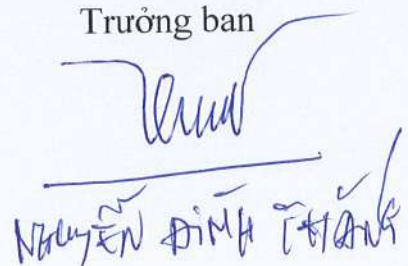 Trưởng ban
NGUYỄN ĐÌNH THẮNG